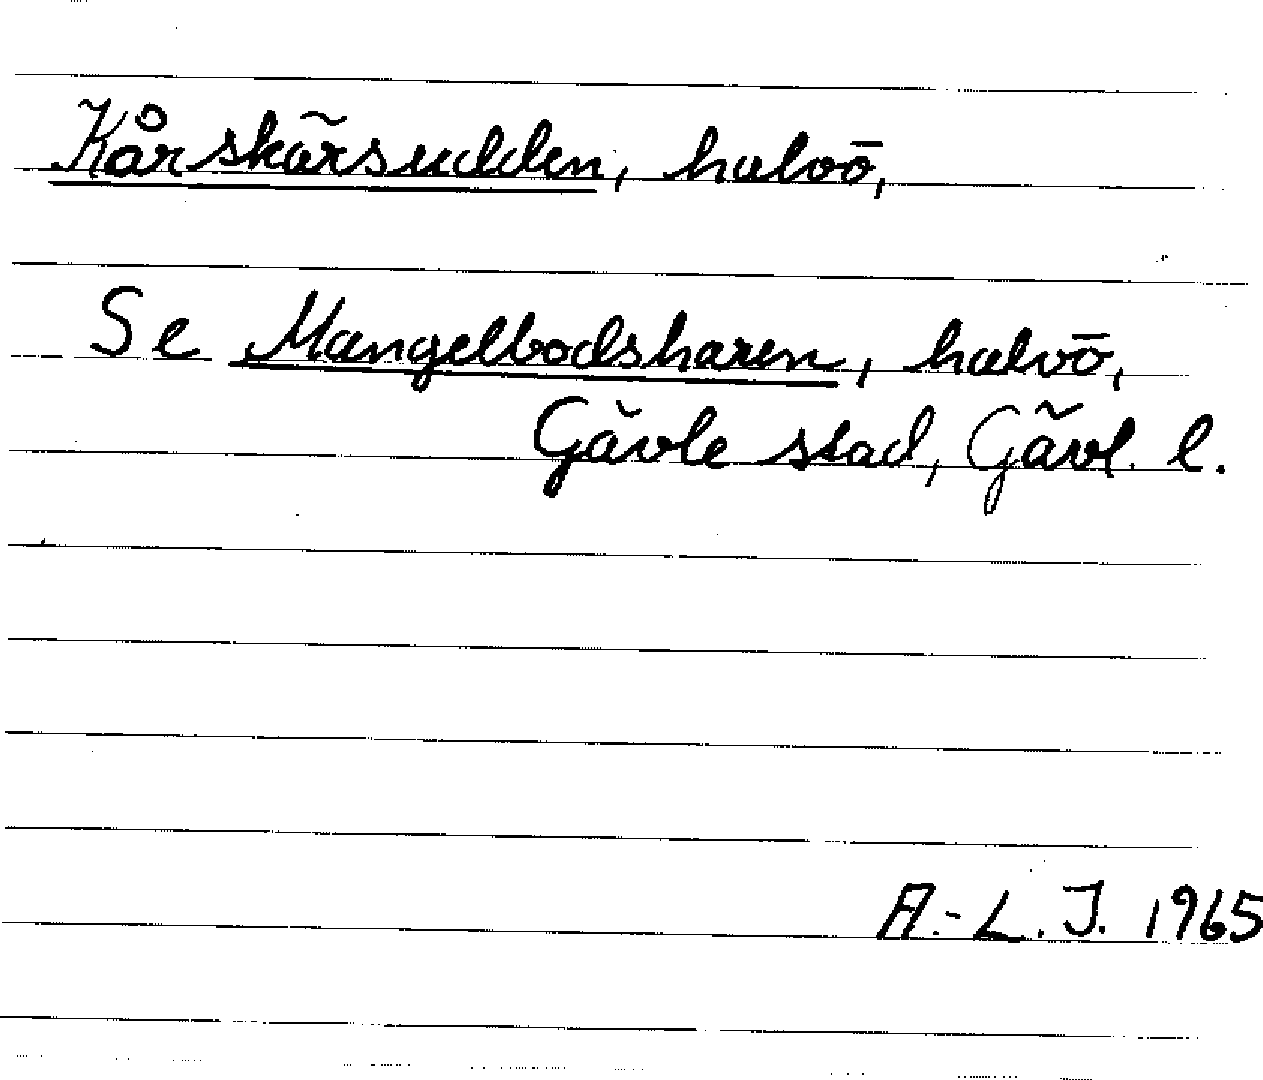 Kårskärsudden, halvö,
Se Mangelbodsharen, halvö,
Gävle stad, Gävl. l.
A.-L. J. 1965